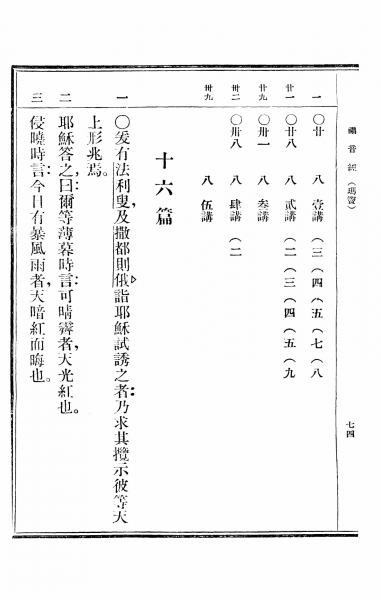 福音經 (瑪竇)
七四
一 〇廿 八 壹講 (三 (四 (五 (七 (八
廿一 〇廿八 八 貳講 (二 (三 (四 (五 (九
廿九 〇卅一 八 叄講
卅二 〇卅八 八 肆講 (二
卅九 八 伍講
十六篇
一 〇爰有法利叟,及撒都則俄詣耶穌試誘之者:乃求其攬示彼等天
上形兆焉。
二 耶穌答之曰:爾等薄暮時言:可晴霽者,天光紅也。
三 侵曉時言:今日有暴風雨者,天暗紅而晦也。